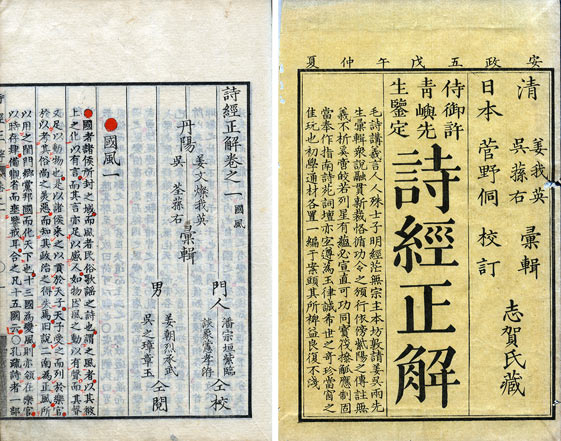 安政五戊午仲夏
清 姜我英 吳蓀右 彙輯 志賀氏藏
日本 菅野侗 校訂
侍御許
青嶼先
生鑒定
詩經正解
毛詩講義言人人殊士子明經茫無宗主本坊敦請姜吳兩先
生彙輯衆說融貫新裁恪循功令之頒行依傍紫陽之傳註無
義不折奚啻皎若列星有蘊必宣直可功同寶筏操觚應制固
當奉作指南詩苑詞壇亦宜遵為玉律誠希世之奇珍當窗之
佳玩也初學通材各置一編于案頭其所裨益良復不淺
詩經正解卷之一 國風
丹陽 姜文燦我英
吳 荃蓀右 彙輯
門人 潘宗垣紫臨
仝校
男 姜朝烈承武
吳之璋章玉 仝閱
國風一
國者諸侯所封之域而風者民俗歌謠之詩也謂之風者以其被
上之化以有言而其言又足以感人如物因風之動以有聲而其聲
又足以動物也是以諸侯采之以貢於天子天子受之而列於樂官
於以考其俗尚之美惡而知其政治之得失焉舊說二南為正風所
以用之閨門鄉黨邦國而化天下也十三國為變風則亦領在樂官
以時存肄備觀省而垂鑒戒耳合之凡十五國云○孔疏詩者一部